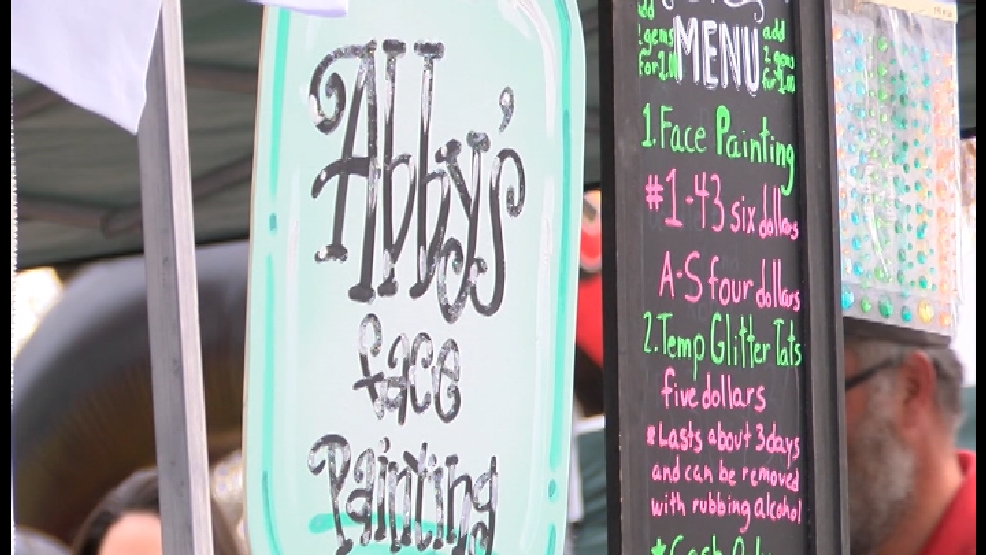 Abby's
face
Painting
MENU
add
2 gems
for 1.00
1. Face Painting
#1-43 six dollars
A-S four dollars
2. Temp Glitter Tats
five dollars
*Lasts about 3 days
and can be removed
with rubbing alcohol
*Cash Only